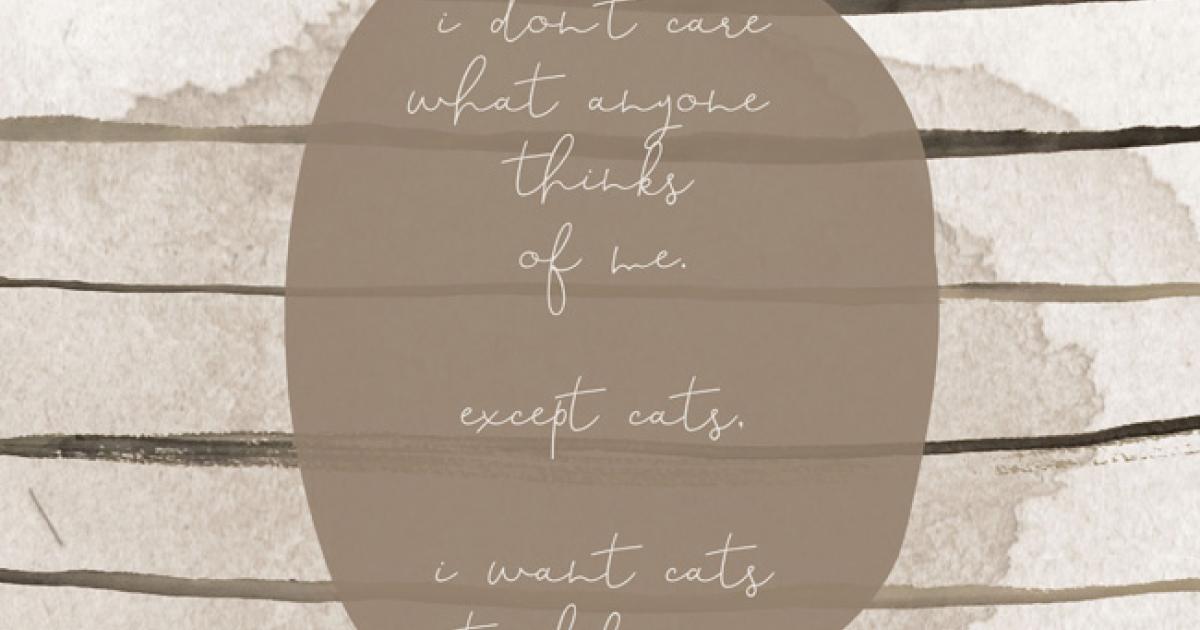 i don't care
what anyone
thinks
of me.
except cats,
i want cats